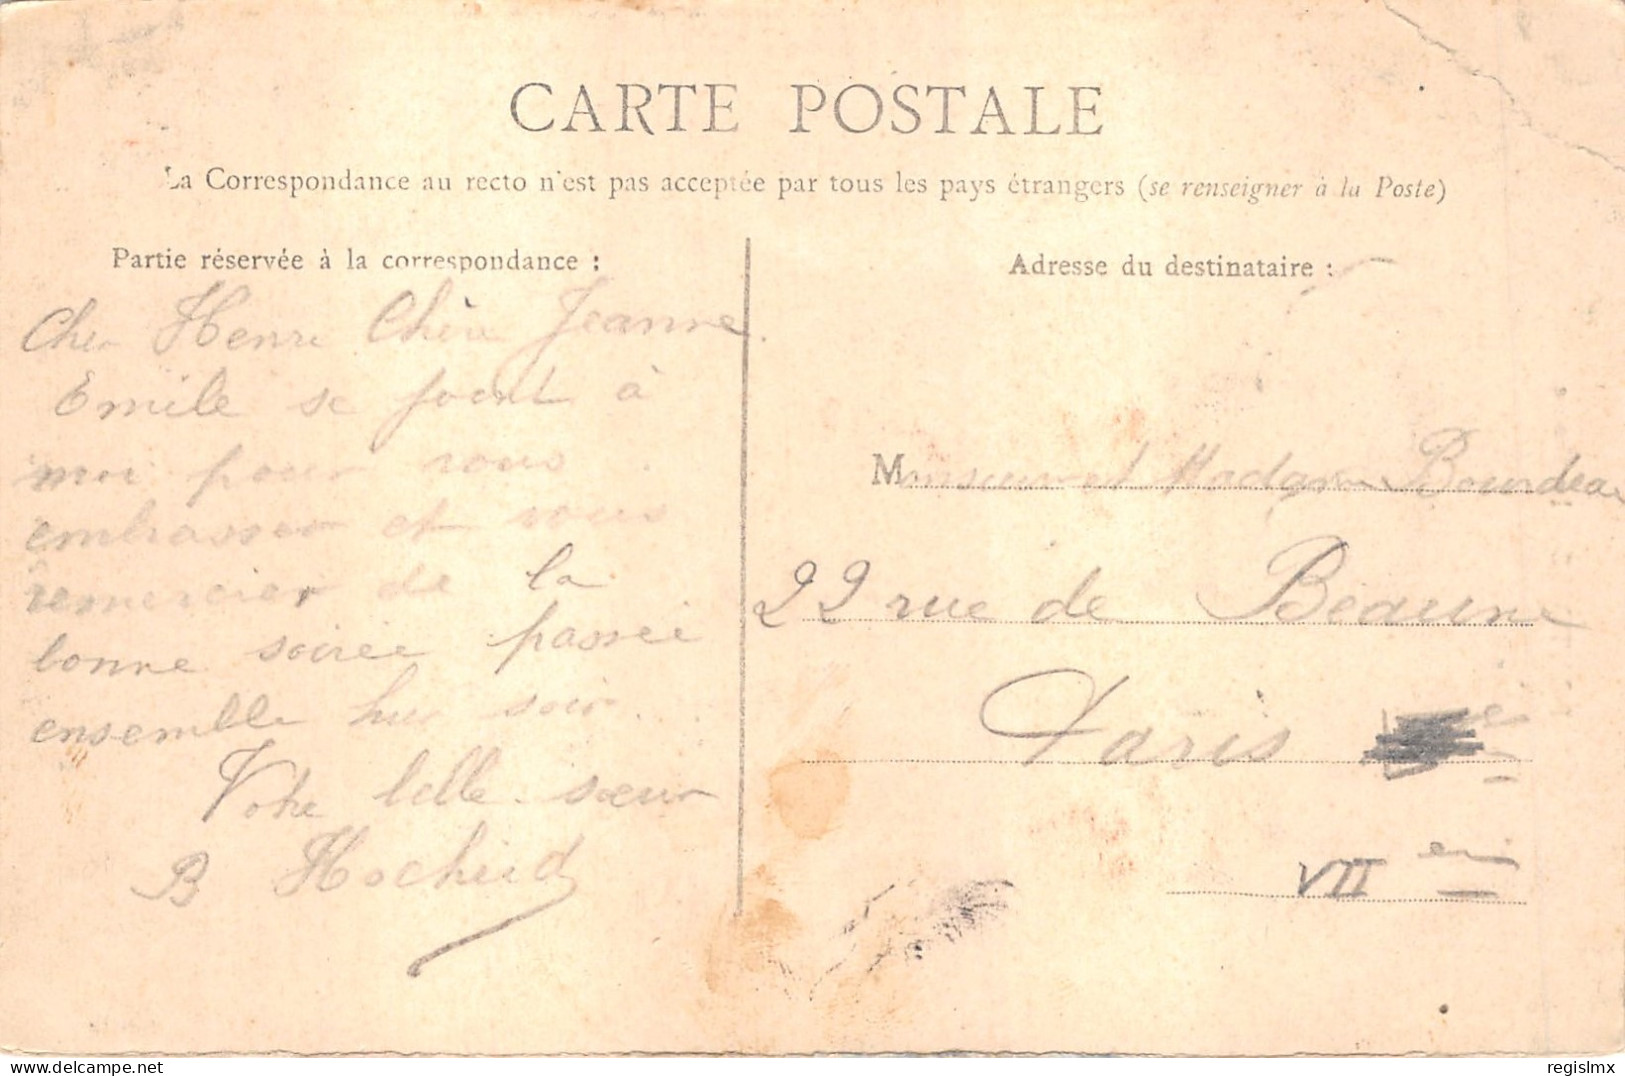 CARTE POSTALE
La Correspondance au recto n'est pas acceptée par tous les pays étrangers (se renseigner à la Poste)
Partie réservée à la correspondance :
Cher Henri Chère Jeanne
Emile se joint à
moi pour vous
embrasser et vous
remercier de la
bonne soirée passée
ensemble hier soir
Votre belle-sœur
B
Adresse du destinataire :
Monsieur et Madame Bourdeau
22 rue de Beaune
Paris
VII
delcampe.net
regislmx